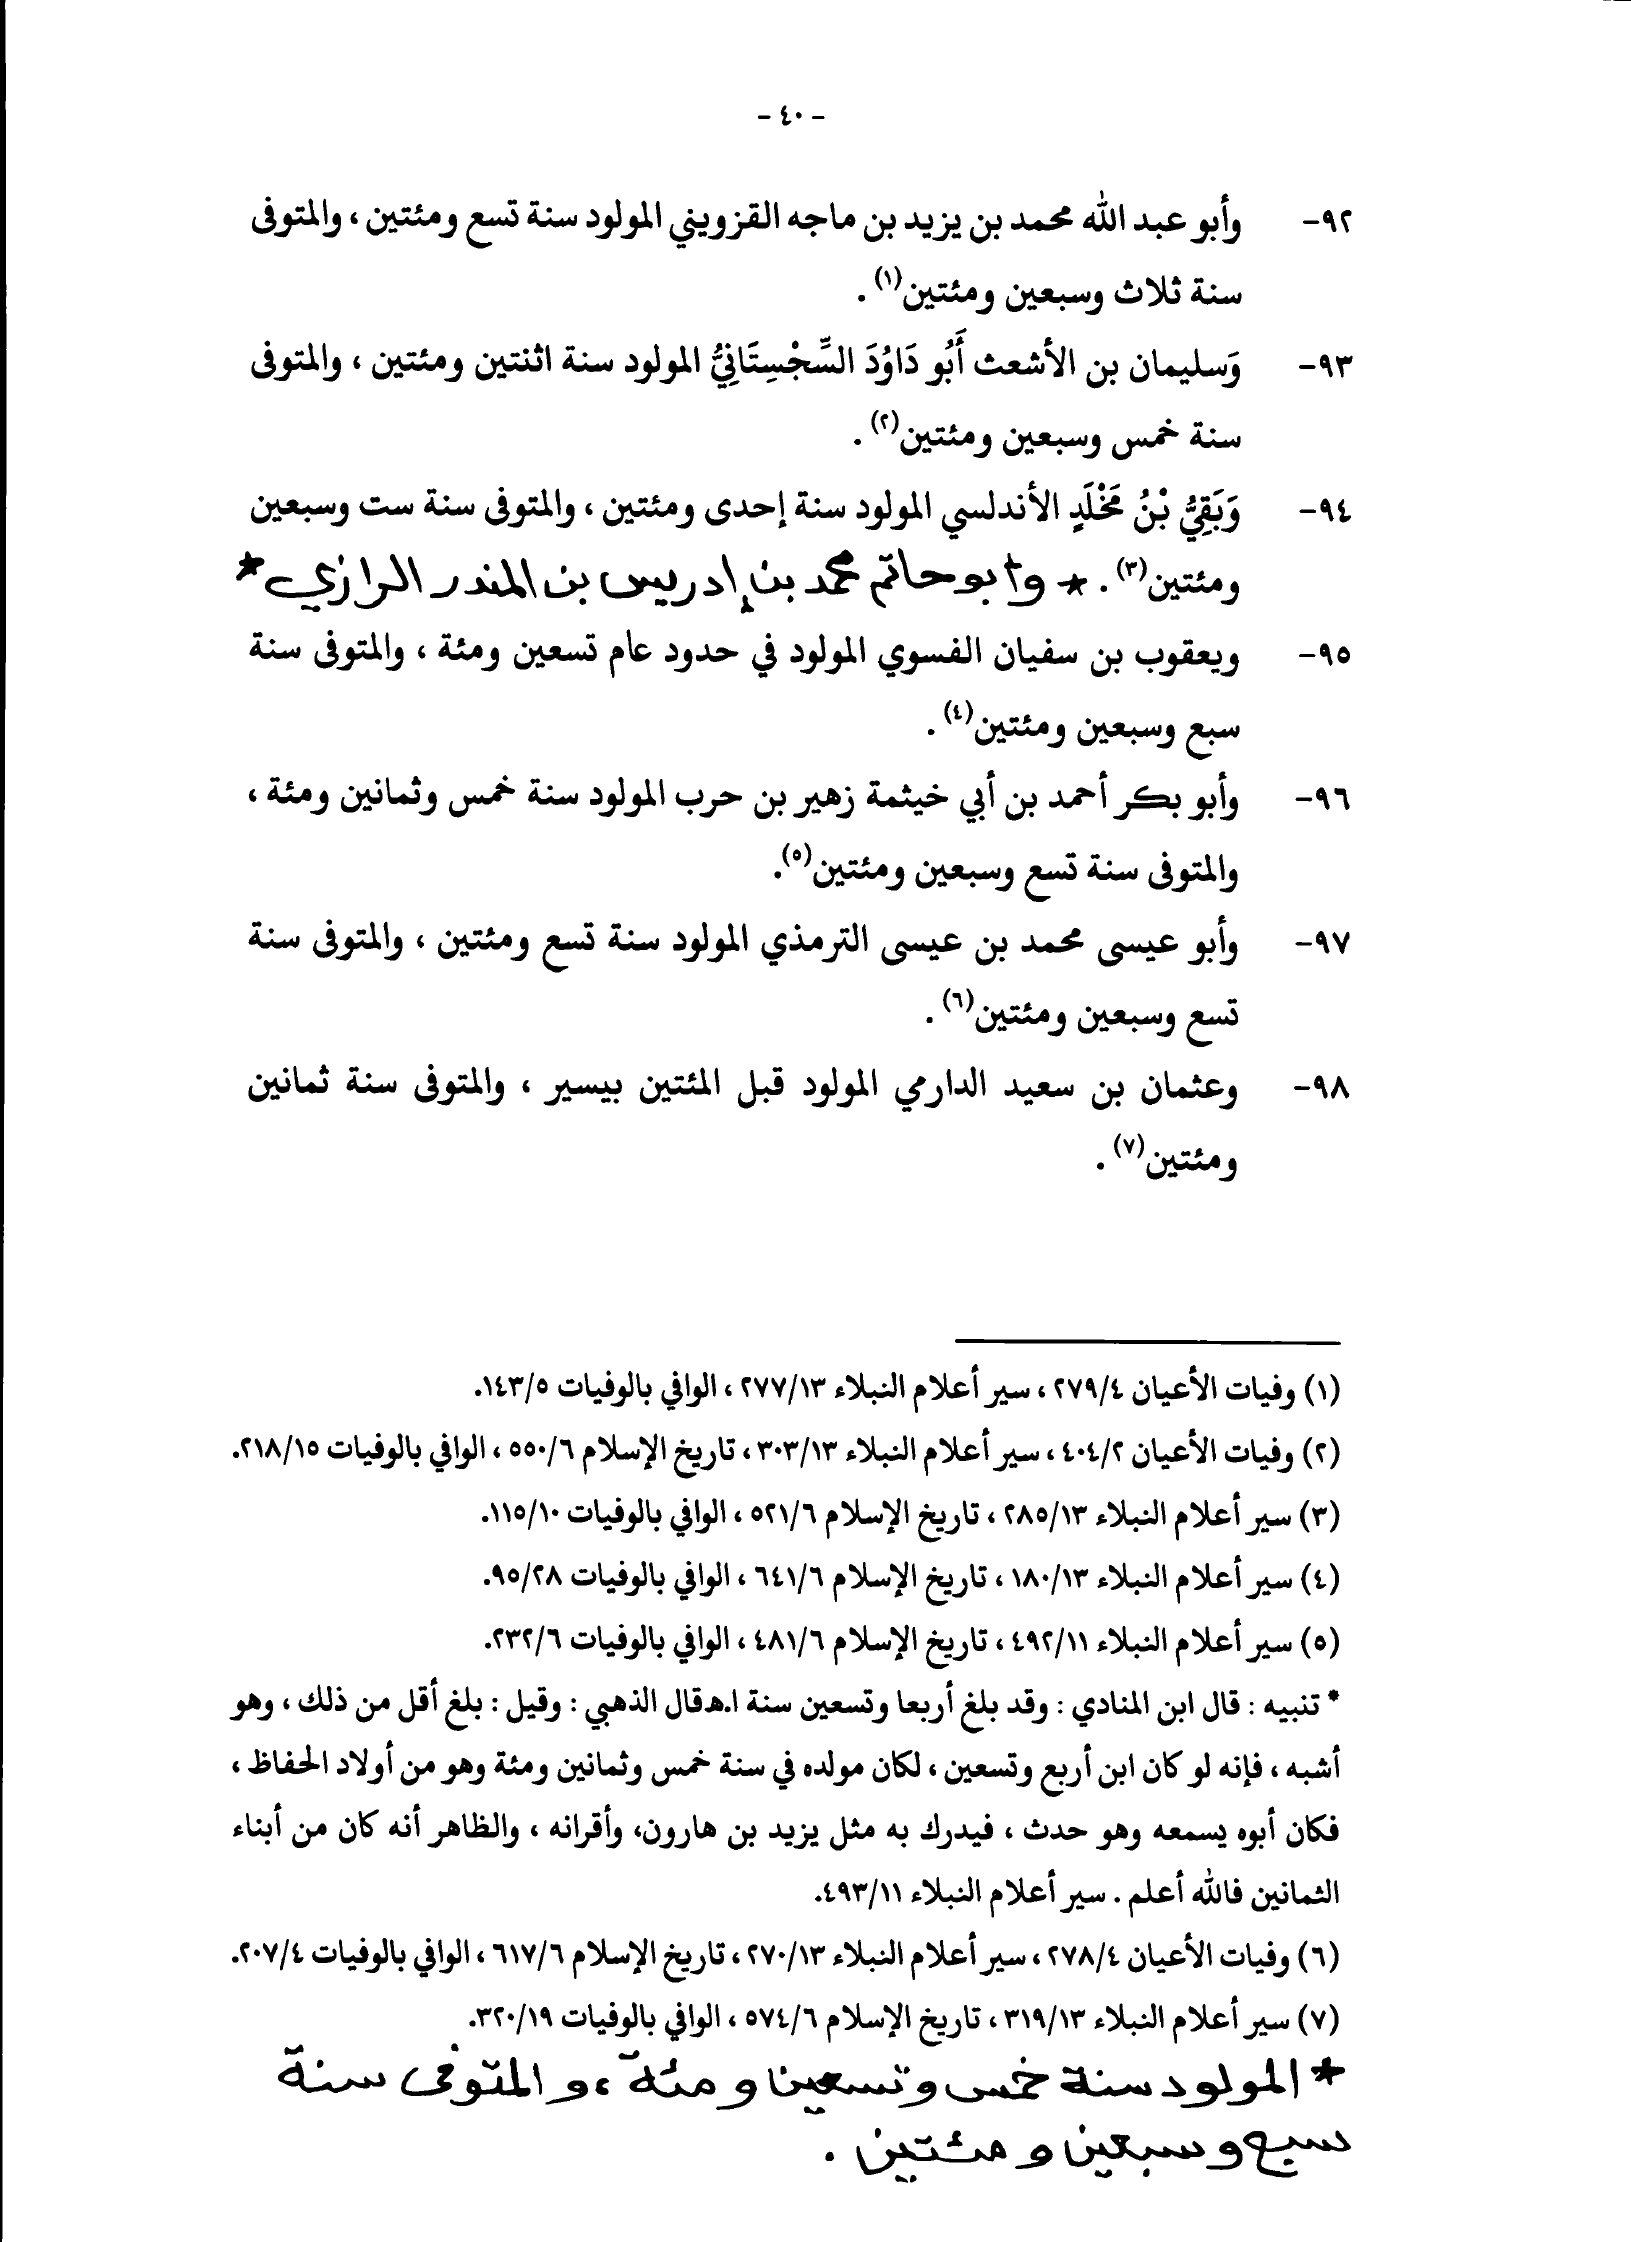 - ٤٠ -
٩٢- وأبو عبد الله محمد بن يزيد بن ماجه القزويني المولود سنة تسع ومئتين ، والمتوفى
سنة ثلاث وسبعين ومئتين(١) .
٩٣- وَسليمان بن الأشعث أَبُو دَاوُدَ السِّجْسِتَانِيُّ المولود سنة اثنتين ومئتين ، والمتوفى
سنة خمس وسبعين ومئتين(٢) .
٩٤- وَبَقِيُّ بْنُ مَخْلَدٍ الأندلسي المولود سنة إحدى ومئتين ، والمتوفى سنة ست وسبعين
ومئتين(٣) . * وأبو حاتم محمد بن إدريس بن المنذر الرازي *
٩٥- ويعقوب بن سفيان الفسوي المولود في حدود عام تسعين ومئة ، والمتوفى سنة
سبع وسبعين ومئتين(٤) .
٩٦- وأبو بكر أحمد بن أبي خيثمة زهير بن حرب المولود سنة خمس وثمانين ومئة ،
والمتوفى سنة تسع وسبعين ومئتين(٥).
٩٧- وأبو عيسى محمد بن عيسى الترمذي المولود سنة تسع ومئتين ، والمتوفى سنة
تسع وسبعين ومئتين(٦) .
٩٨- وعثمان بن سعيد الدارمي المولود قبل المئتين بيسير ، والمتوفى سنة ثمانين
ومئتين(٧) .
(١) وفيات الأعيان ٢٧٩/٤ ، سير أعلام النبلاء ٢٧٧/١٣ ، الوافي بالوفيات ١٤٣/٥.
(٢) وفيات الأعيان ٤٠٤/٢ ، سير أعلام النبلاء ٣٠٣/١٣ ، تاريخ الإسلام ٥٥٠/٦ ، الوافي بالوفيات ٢١٨/١٥.
(٣) سير أعلام النبلاء ٢٨٥/١٣ ، تاريخ الإسلام ٥٢١/٦ ، الوافي بالوفيات ١١٥/١٠.
(٤) سير أعلام النبلاء ١٨٠/١٣ ، تاريخ الإسلام ٦٤١/٦ ، الوافي بالوفيات ٩٥/٢٨.
(٥) سير أعلام النبلاء ٤٩٢/١١ ، تاريخ الإسلام ٤٨١/٦ ، الوافي بالوفيات ٢٣٢/٦.
* تنبيه : قال ابن المنادي : وقد بلغ أربعا وتسعين سنة ا.هـ قال الذهبي : وقيل : بلغ أقل من ذلك ، وهو
أشبه ، فإنه لو كان ابن أربع وتسعين ، لكان مولده في سنة خمس وثمانين ومئة وهو من أولاد الحفاظ ،
فكان أبوه يسمعه وهو حدث ، فيدرك به مثل يزيد بن هارون، وأقرانه ، والظاهر أنه كان من أبناء
الثمانين فالله أعلم . سير أعلام النبلاء ٤٩٣/١١.
(٦) وفيات الأعيان ٢٧٨/٤ ، سير أعلام النبلاء ٢٧٠/١٣ ، تاريخ الإسلام ٦١٧/٦ ، الوافي بالوفيات ٢٠٧/٤.
(٧) سير أعلام النبلاء ٣١٩/١٣ ، تاريخ الإسلام ٥٧٤/٦ ، الوافي بالوفيات ٣٢٠/١٩.
* المولود سنة خمس وتسعين ومئة ، والمتوفى سنة
سبع وسبعين ومئتين .